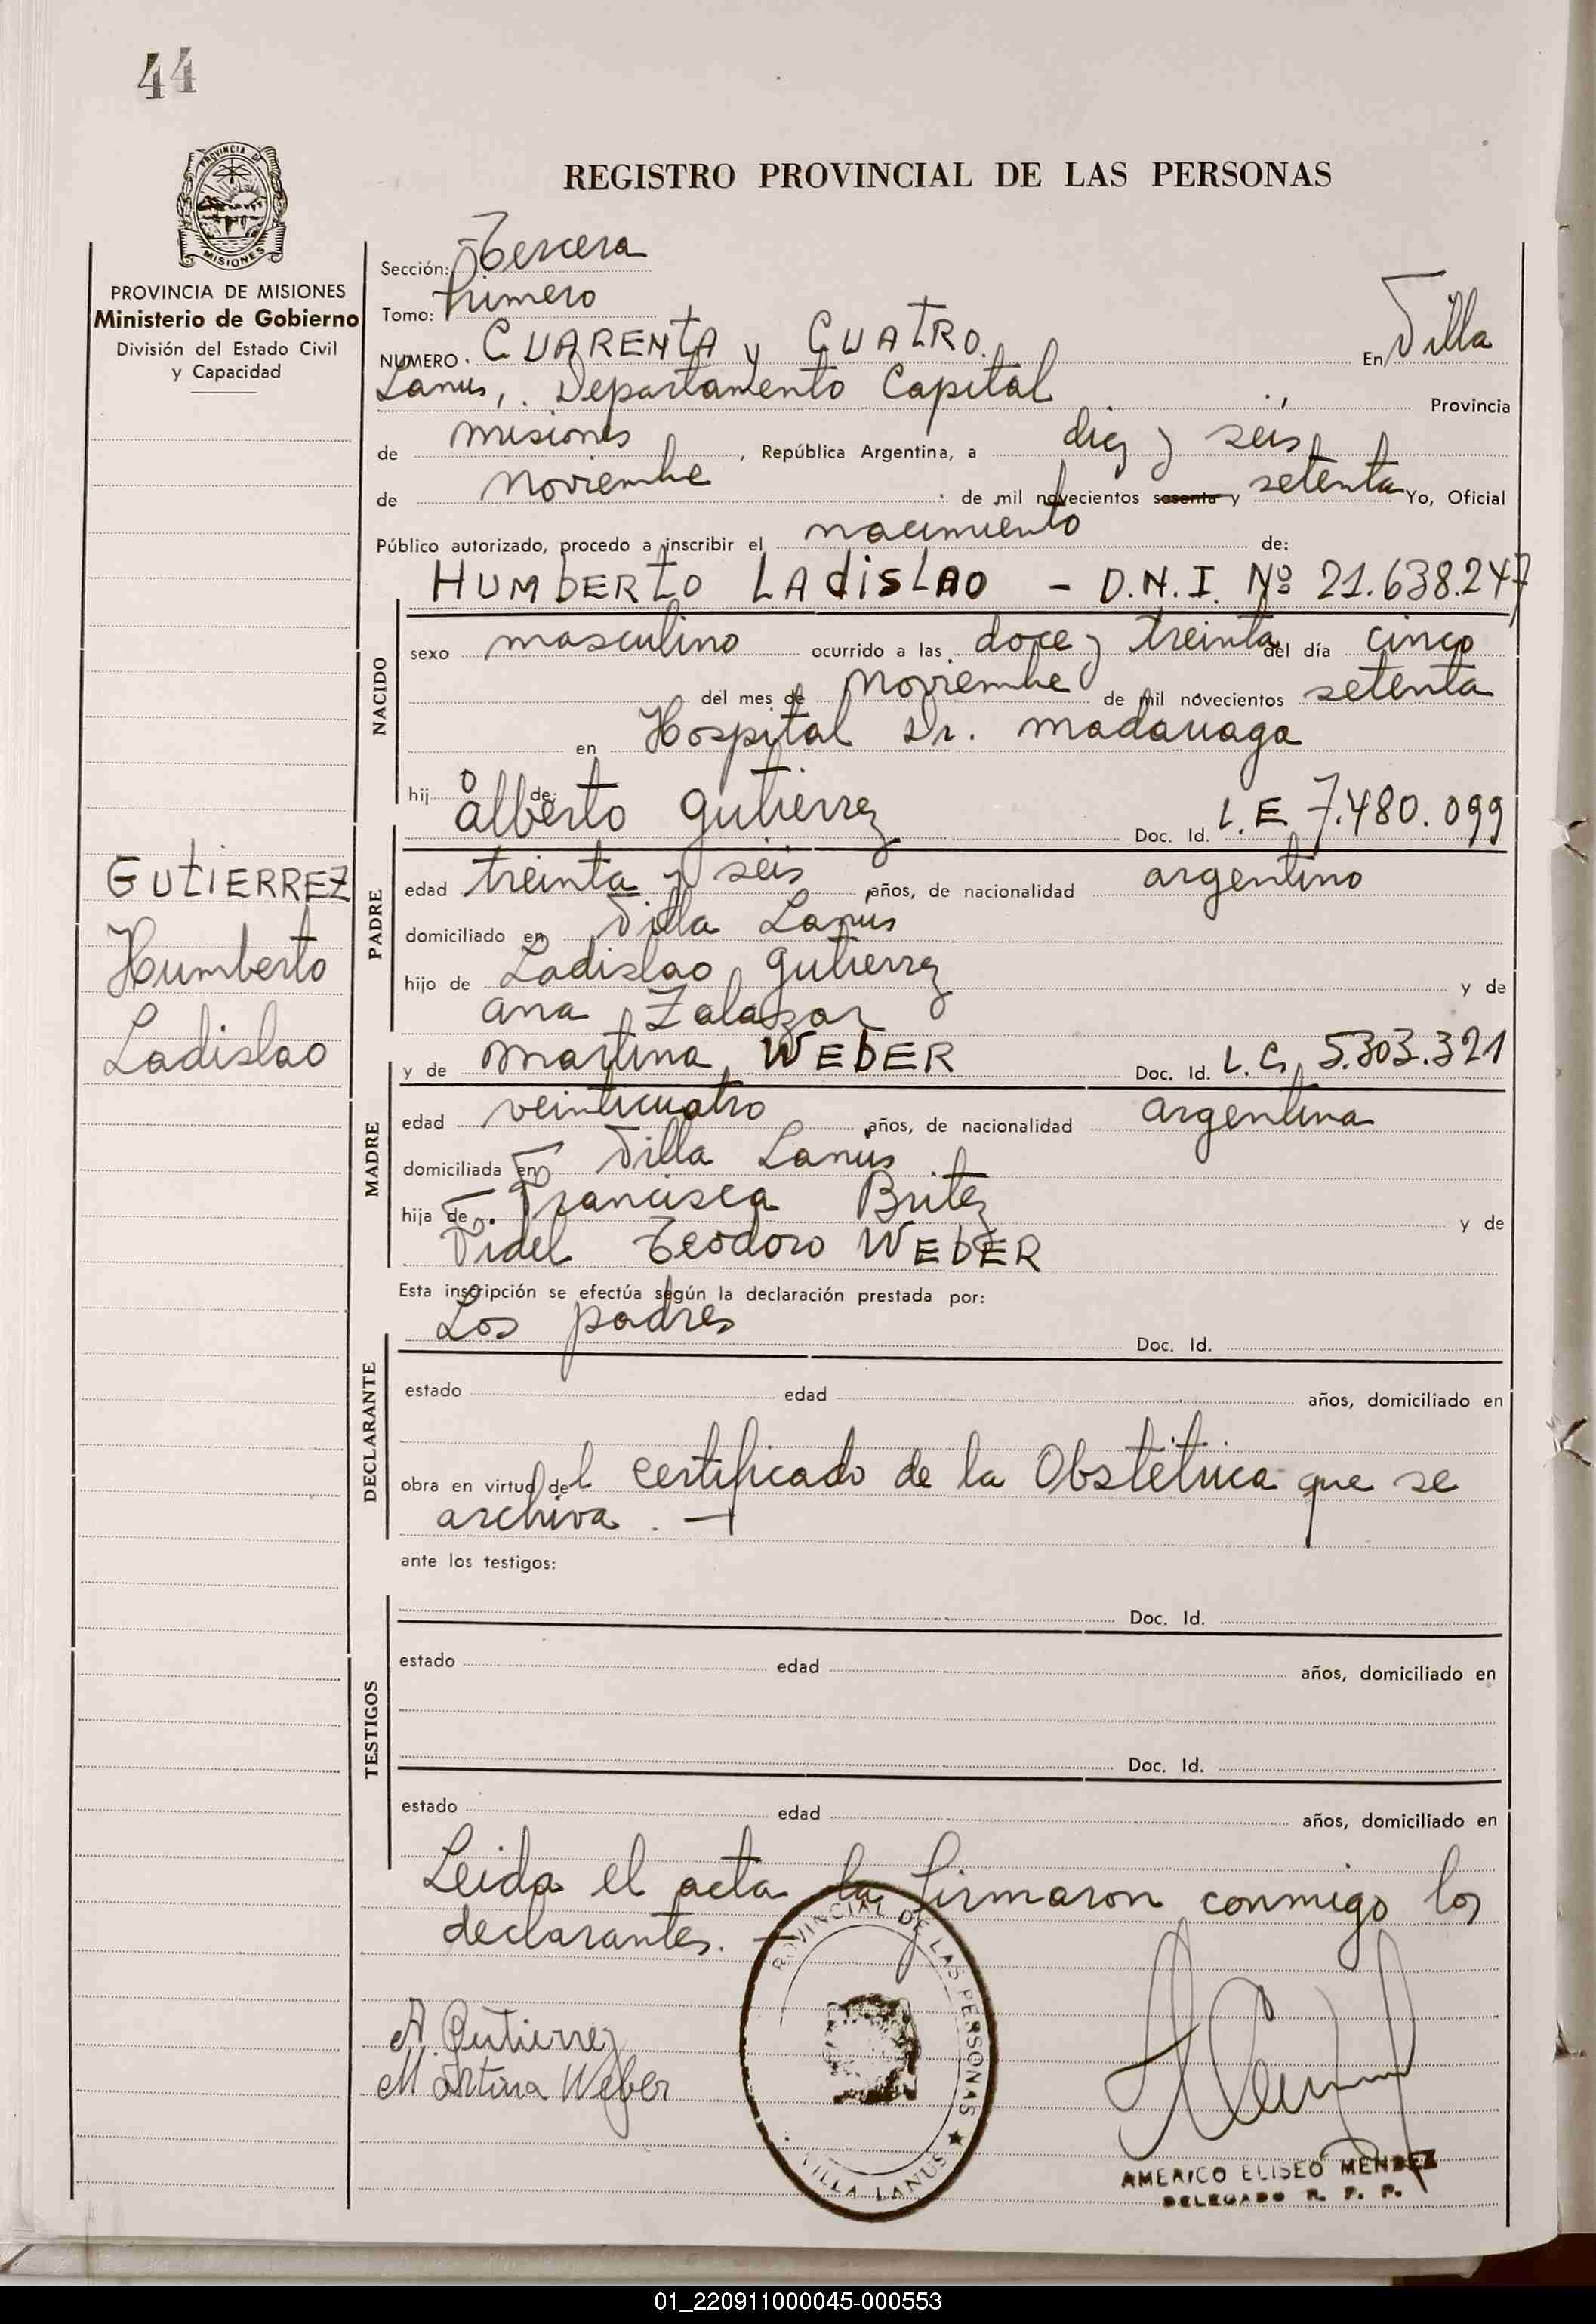 44
PROVINCIA DE
MISIONES
REGISTRO PROVINCIAL DE LAS PERSONAS
PROVINCIA DE MISIONES
Ministerio de Gobierno
División del Estado Civil
y Capacidad
Sección: Tercera
Tomo: primero
NUMERO. CUARENTA y CUATRO. En Villa
Lanus, Departamento Capital Provincia
de misiones, República Argentina, a diez y seis
de noviembre de mil novecientos sesenta y setenta Yo, Oficial
Público autorizado, procedo a inscribir el nacimiento de:
HUMBERTO LADISLAO - D.N.I. Nº 21.638.247
NACIDO
sexo masculino ocurrido a las doce y treinta del día cinco
del mes de noviembre de mil novecientos setenta
en Hospital Dr. Madariaga
hijo de:
alberto gutierrez Doc. Id. L.E 7.480.099
GUTIERREZ
Humberto
Ladislao
PADRE
edad treinta y seis años, de nacionalidad argentino
domiciliado en Villa Lanus
hijo de Ladislao gutierrez y de
ana Zalazar
y de Martina WEBER Doc. Id. L.C. 5.303.321
MADRE
edad veinticuatro años, de nacionalidad argentina
domiciliada en Villa Lanus
hija de Francisca Britez y de
Fidel Teodoro WEBER
Esta inscripción se efectúa según la declaración prestada por:
Los padres Doc. Id.
DECLARANTE
estado edad años, domiciliado en
obra en virtud del certificado de la Obstétrica que se
archiva. -
ante los testigos:
Doc. Id.
TESTIGOS
estado edad años, domiciliado en
Doc. Id.
estado edad años, domiciliado en
Leida el acta la firmaron conmigo los
declarantes. -
A. Gutierrez
Martina Weber
PROVINCIAL DE LAS PERSONAS ★
VILLA LANUS
AMERICO ELISEO MENDEZ
DELEGADO R. P. P.
01_220911000045-000553